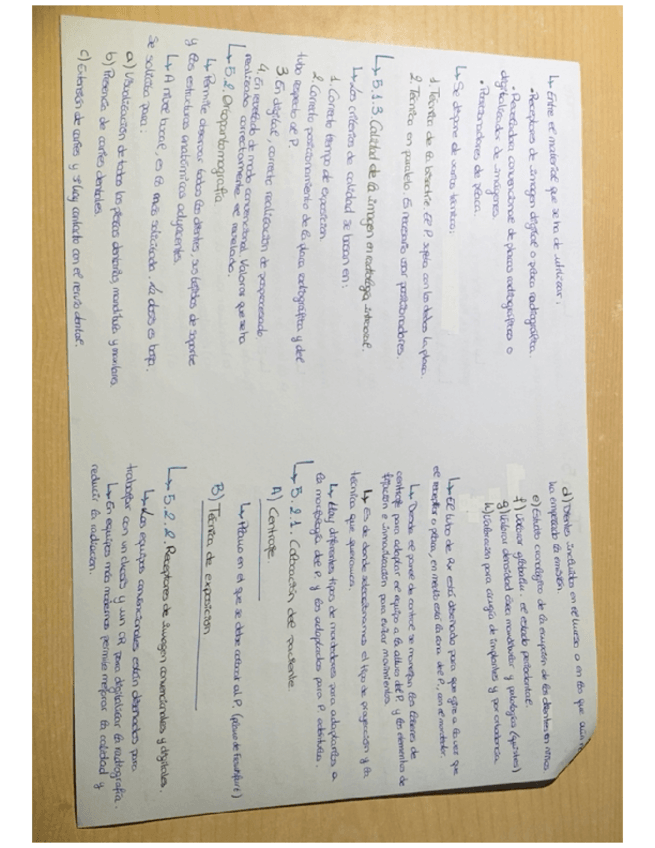 ↳ Entre el material que se ha de utilizar:
• Receptores de imagen digital o placa radiográfica.
• Procesadora convencional de placas radiográficas o
digitalizador de imágenes.
• Posicionadores de placa.
↳ Se dispone de varias técnicas:
1. Técnica de la bisectriz El P. sujeta con los dedos la placa.
2. Técnica en paralelo Es necesario usar posicionadores.
↳ 5.1.3 Calidad de la imagen en radiología intraoral.
↳ Los criterios de calidad se basan en:
1. Correcto tiempo de exposición.
2. Correcto posicionamiento de la placa radiográfica y del
tubo respecto al P.
3. En digital, correcta realización de posprocesado
4. En revelado de modo convencional. Valorar que se ha
realizado correctamente el revelado.
↳ 5.2. Ortopantomografía
↳ Permite observar todos los dientes, sus tejidos de soporte
y las estructuras anatómicas adyacentes.
↳ A nivel bucal, es la más solicitada. La dosis es baja.
Se solicita para:
a) Visualización de todas las piezas dentarias, mandíbula y maxilares
b) Presencia de caries dentales.
c) Extensión de caries y si hay contacto con el nervio dental.
d) Dientes incluidos en el hueso o en los que aún n
ha empezado la erupción.
e) Estudio cronológico de la erupción de los dientes en niños.
f) Valorar globalm. el estado periodontal.
g) Valorar densidad ósea mandibular y patológica (quistes)
h) Valoración para cirugía de implantes y por ortodoncia.
↳ El tubo de Rx está diseñado para que gire a la vez que
el receptor o placa, en medio está la cara del P., con el mordedor.
↳ Desde el panel de control se manejan los láseres de
centraje para adaptar el equipo a la altura del P. y los elementos de
fijación e inmovilización para evitar movimientos.
↳ Es de donde seleccionamos el tipo de proyección y la
técnica que queremos.
↳ Hay diferentes tipos de mordedores para adaptarlos a
la morfología del P. y los adaptados para P. edéntulos.
↳ 5.2.1. Colocación del paciente.
A) Centraje.
↳ Plano en el que se debe colocar al P. (plano de Frankfurt)
B) Técnica de exposición
↳ 5.2.2. Receptores de imagen convencionales y digitales.
↳ Los equipos convencionales están diseñados para
trabajar con un chasis y un CR para digitalizar la radiografía.
↳ En equipos más modernos permite mejorar la calidad y
reducir la radiación.